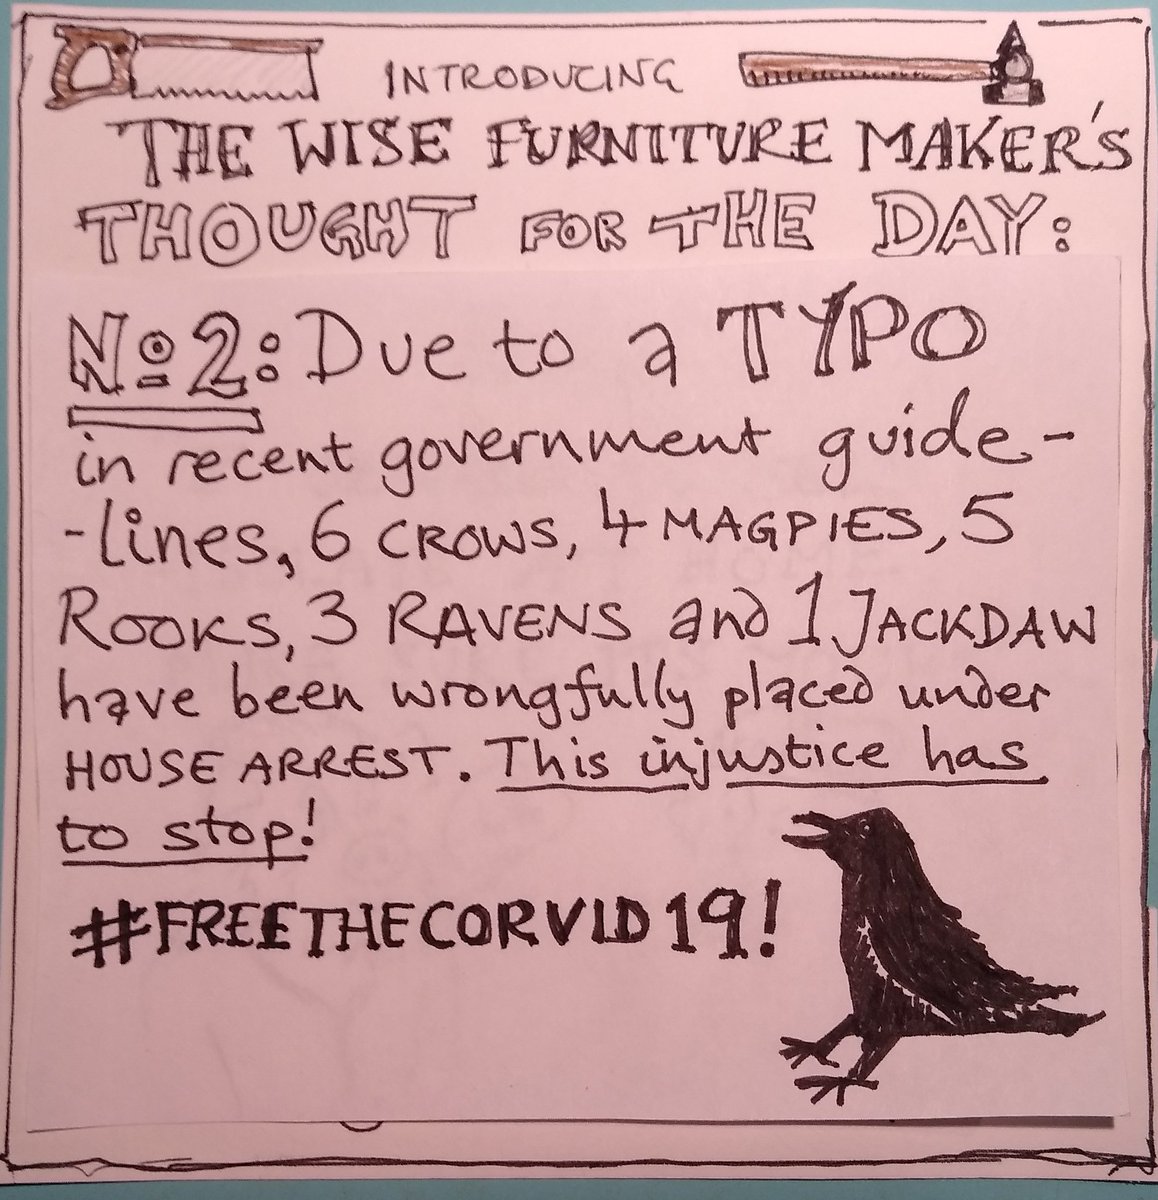 INTRODUCING
THE WISE FURNITURE MAKER'S
THOUGHT FOR THE DAY:
Nº2: Due to a TYPO
in recent government guide-
-lines, 6 CROWS, 4 MAGPIES, 5
ROOKS, 3 RAVENS and 1 JACKDAW
have been wrongfully placed under
HOUSE ARREST. This injustice has
to stop!
#FREETHECORVID19!